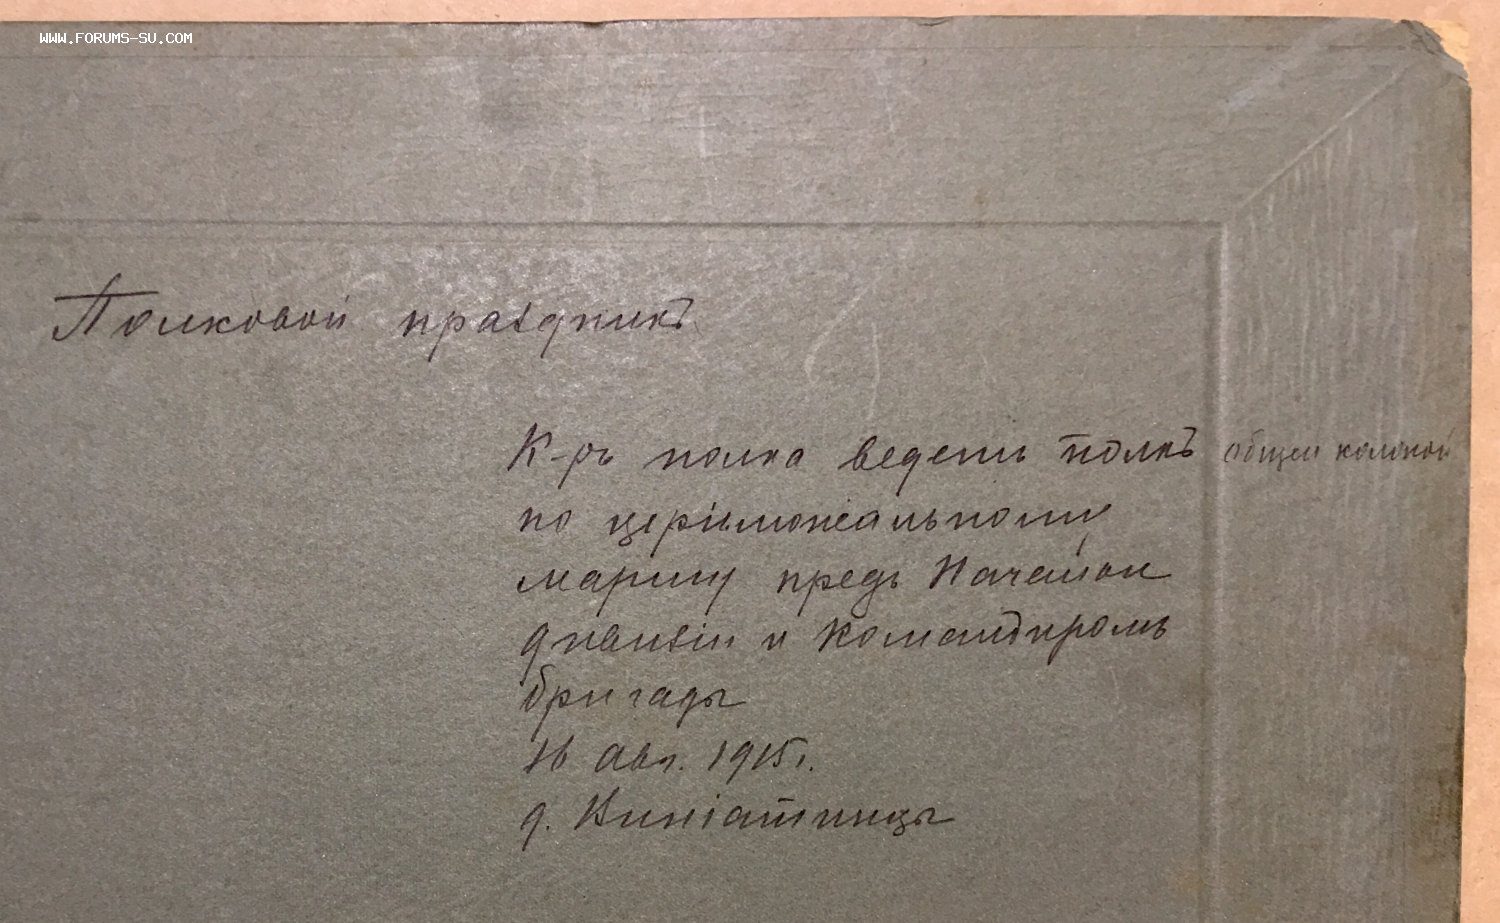 WWW.FORUMS-SU.COM
Полковой праздникъ
К-ръ полка ведетъ полкъ общей колоной
по церимоніальному
маршу предъ Началом
дивизіи и командиромъ
бригады
16 авг. 1915 г.
д. Виніатинцы